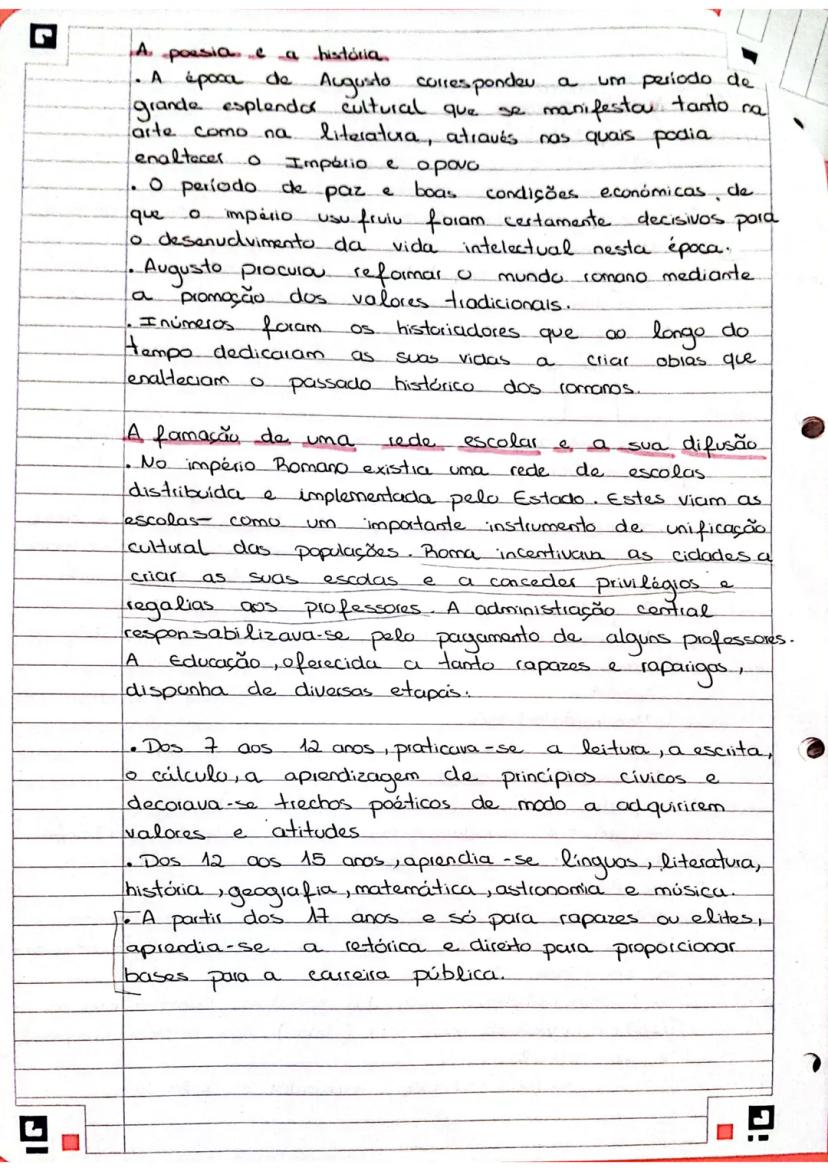 A poesia e a história
. A época de Augusto correspondeu a um período de
grande esplendor cultural que se manifestou tanto na
arte como na literatura, através nas quais podia
enaltecer o Império e o povo
. O período de paz e boas condições económicas, de
que o império usufruiu foram certamente decisivos para
o desenvolvimento da vida intelectual nesta época.
. Augusto procura reformar o mundo romano mediante
a promoção dos valores tradicionais.
. Inúmeros foram os historiadores que ao longo do
tempo dedicaram as suas vidas a criar obras que
enalteciam o passado histórico dos romanos.
A formação de uma rede escolar e a sua difusão
. No império Romano existia uma rede de escolas
distribuída e implementada pelo Estado. Estes viam as
escolas como um importante instrumento de unificação
cultural das populações. Roma incentivava as cidades a
criar as suas escolas e a conceder privilégios e
regalias aos professores. A administração central
responsabilizava-se pelo pagamento de alguns professores.
A Educação, oferecida a tanto rapazes e raparigas,
dispunha de diversas etapas:
. Dos 7 aos 12 anos, praticava-se a leitura, a escrita,
o cálculo, a aprendizagem de princípios cívicos e
decorava-se trechos poéticos de modo a adquirirem
valores e atitudes
. Dos 12 aos 15 anos, aprendia-se línguas, literatura,
história, geografia, matemática, astronomia e música.
. A partir dos 17 anos e só para rapazes ou elites,
aprendia-se a retórica e direito para proporcionar
bases para a carreira pública.